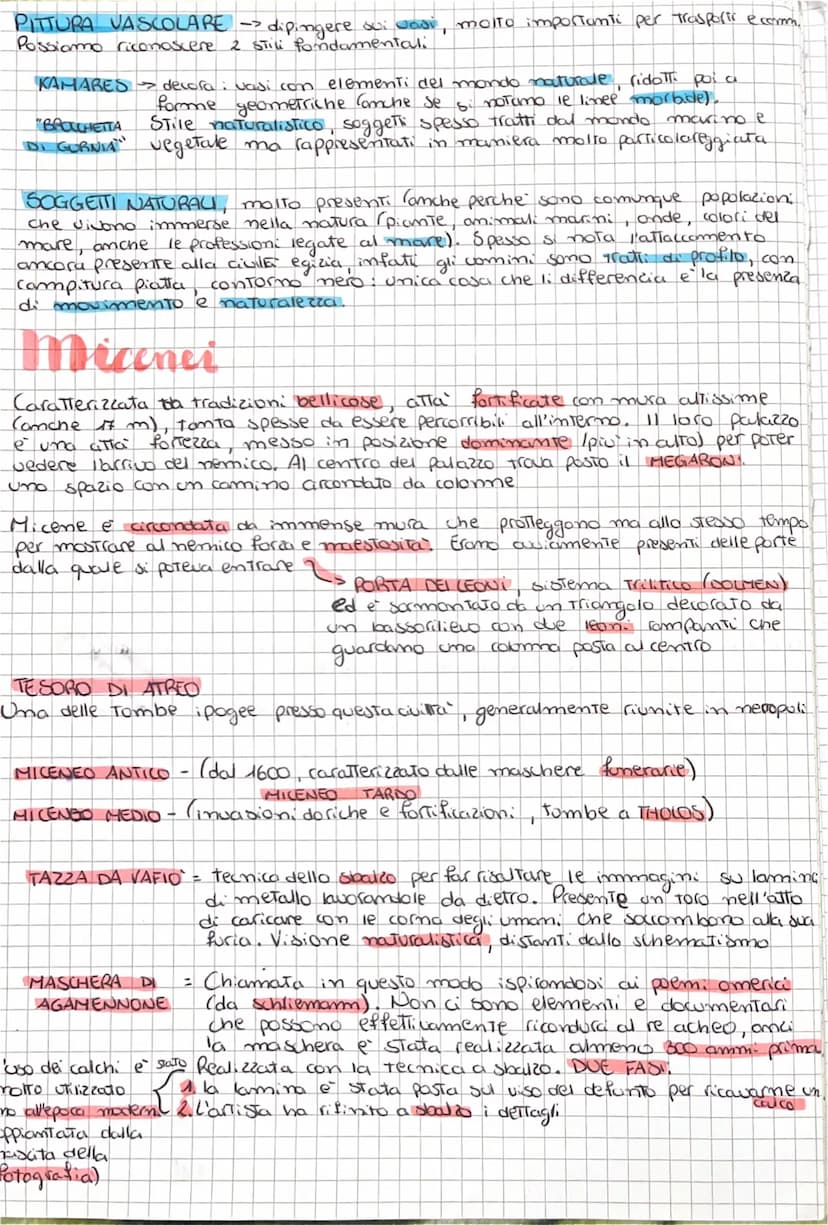 PITTURA VASCOLARE -> dipingere sui vasi, molto importanti per trasporti e comm.
Possiamo riconoscere 2 stili fondamentali
KAMARES -> decora: vasi con elementi del mondo naturale, ridotti poi a
forme geometriche (anche se si notano le linee morbide).
"BROCCHETTA DI GURNIA" Stile naturalistico, soggetti spesso tratti dal mondo marino e
vegetale ma rappresentati in maniera molto particolareggiata
SOGGETTI NATURALI, molto presenti (anche perchè sono comunque popolazioni
che vivono immerse nella natura (piante, animali marini, onde, colori del
mare, anche le professioni legate al mare). Spesso si nota l'attaccamento
ancora presente alla civiltà egizia, infatti gli uomini sono tratti di profilo, con
campitura piatta, contorno nero: unica cosa che li differencia è la presenza
di movimento e naturalezza.
Micenei
Caratterizzata da tradizioni bellicose, città fortificate con mura altissime
(anche 17 m), tanto spesse da essere percorribili all'interno. Il loro palazzo
è una città fortezza, messo in posizione dominante (più in alto) per poter
vedere l'arrivo del nemico. Al centro del palazzo trova posto il MEGARON:
uno spazio con un camino circondato da colonne
Micene è circondata da immense mura che proteggono ma allo stesso tempo
per mostrare al nemico forza e maestosità. Erano ovviamente presenti delle porte
dalla quale si poteva entrare
-> PORTA DEI LEONI, sistema trilitico (DOLMEN)
ed è sormontato da un triangolo decorato da
un bassorilievo con due leoni rampanti che
guardano una colonna posta al centro
TESORO DI ATREO
Una delle tombe ipogee presso questa civiltà, generalmente riunite in necropoli
MICENEO ANTICO - (dal 1600, caratterizzato dalle maschere funerarie)
MICENEO TARDO
MICENEO MEDIO - (invasioni doriche e fortificazioni, tombe a THOLOS)
TAZZA DA VAFIO = tecnica dello sbalzo per far risaltare le immagini su lamina
di metallo lavorandole da dietro. Presente un toro nell'atto
di caricare con le corna degli umani che soccombono alla sua
furia. Visione naturalistica, distanti dallo schematismo
MASCHERA DI AGAMENNONE = Chiamata in questo modo ispirandosi ai poemi omerici
(da schliemann). Non ci sono elementi e documentari
che possono effettivamente ricondurci al re acheo, anzi
la maschera è stata realizzata almeno 300 anni prima
Realizzata con la tecnica a sbalzo. DUE FASI:
1. la lamina è stata posta sul viso del defunto per ricavarne un
calco
2. L'artista ha rifinito a sbalzo i dettagli
'uso dei calchi è stato
molto utilizzato
no all'epoca moderna
oppiantata dalla
ascita della
fotografia)